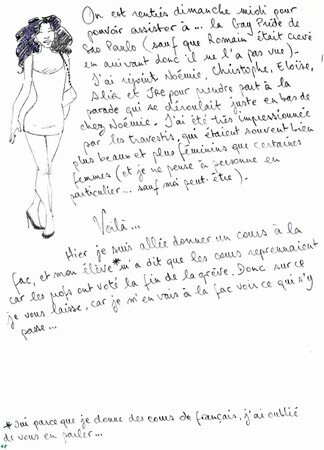 On est rentrés dimanche midi pour
pouvoir assister à... la Gay Pride de
Sao Paulo (sauf que Romain était crevé
en arrivant donc il ne l'a pas vue).
J'ai rejoint Noémie, Christophe, Eloïse,
Alia et Joe pour prendre part à la
parade qui se déroulait juste en bas de
chez Noémie. J'ai été très impressionnée
par les travestis, qui étaient souvent bien
plus beaux et plus féminins que certaines
femmes (et je ne pense à personne en
particulier... sauf moi peut-être).
Voilà...
Hier je suis allée donner un cours à la
fac, et mon élève* m'a dit que les cours reprennaient
car les profs ont voté la fin de la grève. Donc sur ce
je vous laisse, car je m'en vais à la fac voir ce qui s'y
passe...
*oui parce que je donne des cours de français, j'ai oublié
de vous en parler...